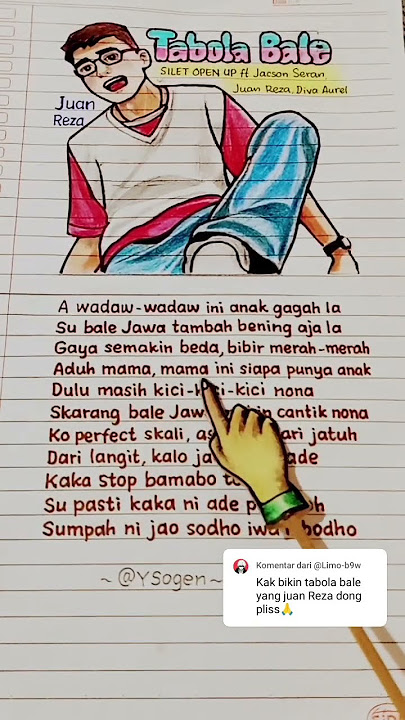 Tabola Bale
SILET OPEN UP ft Jacson Seran
Juan Reza, Diva Aurel
Juan
Reza
A wadaw-wadaw ini anak gagah la
Su bale Jawa tambah bening aja la
Gaya semakin beda, bibir merah-merah
Aduh mama, mama ini siapa punya anak
Dulu masih kici-kici-kici nona
Skarang bale Jaw cantik nona
Ko perfect skali, jatuh
Dari langit, kalo ade
Kaka stop bamabo
Su pasti kaka ni ade
Sumpah ni jao sodho bodho
~@YSogen~
Komentar dari @Limo-b9w
Kak bikin tabola bale
yang juan Reza dong
pliss🙏